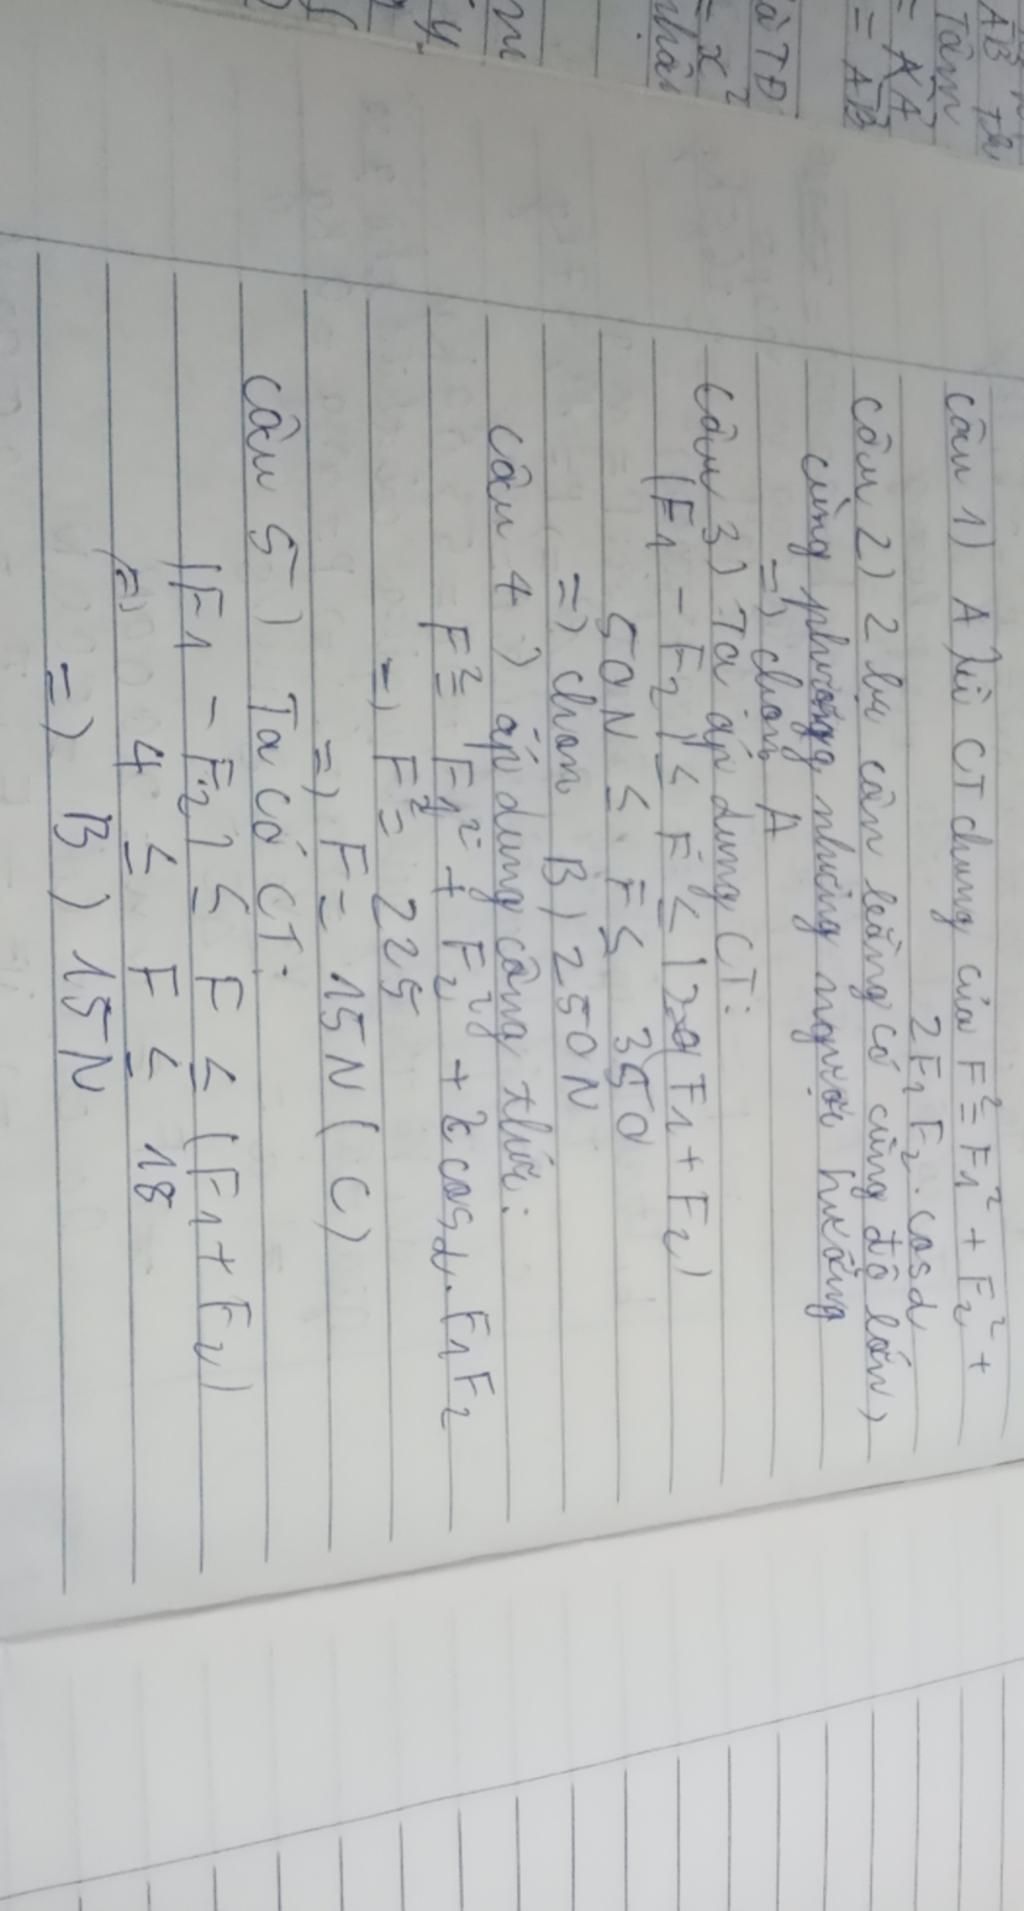 AB Th
Tâm
= AA
= AB
TĐ
= x²
nhân
y
câu 1) A) Vì CT chung của F² = F1² + F2² +
2F1F2.cosα
câu 2) 2 lực cân bằng có cùng độ lớn,
cùng phương nhưng ngược hướng
=) chọn A
câu 3) Ta áp dụng CT:
|F1 - F2| ≤ F ≤ | F1 + F2)
50N ≤ F ≤ 350
=) chọn B) 250N
câu 4) áp dụng công thức:
F² = F1² + F2² + 2cosα.F1F2
=) F² = 225
=) F = 15N (C)
câu 5) Ta có CT:
|F1 - F2| ≤ F ≤ (F1 + F2)
=) 4 ≤ F ≤ 18
=) B) 15N